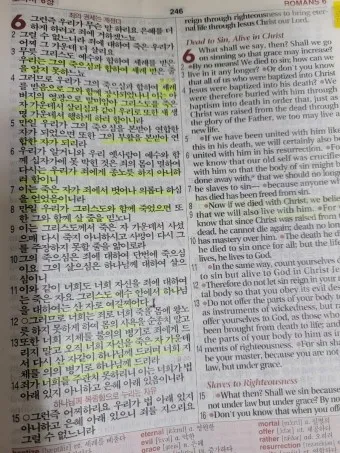 246
ROMANS 6
6 그런즉 우리가 무슨 말 하리요 은혜를 더
하게 하려고 죄에 거하겠느뇨
2 그럴 수 없느니라 죄에 대하여 죽은 우리가
어찌 그 가운데 더 살리요
3 무릇 그리스도 예수와 합하여 세례를 받은
우리는 그의 죽으심과 합하여 세례 받은 줄
을 알지 못하느뇨
4 그러므로 우리가 그의 죽으심과 합하여 세례
를 받음으로 그와 함께 장사되었나니 이는 아
버지의 영광으로 말미암아 그리스도를 죽은
자 가운데서 살리심과 같이 우리로 또한 새 생
명 가운데서 행하게 하려 함이니라
5 만일 우리가 그의 죽으심을 본받아 연합한
자가 되었으면 또한 그의 부활을 본받아 연
합한 자가 되리라
6 우리가 알거니와 우리 옛 사람이 예수와 함
께 십자가에 못 박힌 것은 죄의 몸이 멸하여
다시는 우리가 죄에게 종노릇 하지 아니하
려 함이니
7 이는 죽은 자가 죄에서 벗어나 의롭다 하심
을 얻었음이니라
8 만일 우리가 그리스도와 함께 죽었으면 또
한 그와 함께 살 줄을 믿노니
9 이는 그리스도께서 죽은 자 가운데서 사셨
으매 다시 죽지 아니하시고 사망이 다시 그
를 주장하지 못할 줄을 앎이로라
10 그의 죽으심은 죄에 대하여 단번에 죽으심
이요 그의 살으심은 하나님께 대하여 살으
심이니
11 이와 같이 너희도 너희 자신을 죄에 대하여
는 죽은 자요 그리스도 예수 안에서 하나님
을 대하여는 산 자로 여길지어다
12 그러므로 너희는 죄로 너희 죽을 몸에 왕노
릇 하지 못하게 하여 몸의 사욕을 순종치 말고
13 또한 너희 지체를 불의의 병기로 죄에게 드
리지 말고 오직 너희 자신을 죽은 자 가운데
서 다시 산 자같이 하나님께 드리며 너희 지
체를 의의 병기로 하나님께 드리라
14 죄가 너희를 주관치 못하리니 이는 너희가 법
아래 있지 아니하고 은혜 아래 있음이니라
15 그런즉 어찌하리요 우리가 법 아래 있지
아니하고 은혜 아래 있으니 죄를 지으리요
그럴 수 없느니라
reign through righteousness to bring eter-
nal life through Jesus Christ our Lord.
Dead to Sin, Alive in Christ
6 What shall we say, then? Shall we go
on sinning so that grace may increase?
²By no means! We died to sin; how can we
live in it any longer? ³Or don't you know
that all of us who were baptized into Christ
Jesus were baptized into his death? ⁴We
were therefore buried with him through
baptism into death in order that, just as
Christ was raised from the dead through
the glory of the Father, we too may live a
new life.
⁵If we have been united with him like
this in his death, we will certainly also be
united with him in his resurrection. ⁶For
we know that our old self was crucified
with him so that the body of sin might be
done away with, that we should no longer
be slaves to sin— ⁷because anyone who
has died has been freed from sin.
⁸Now if we died with Christ, we believe
that we will also live with him. ⁹For we
know that since Christ was raised from the
dead, he cannot die again; death no longer
has mastery over him. ¹⁰The death he died,
he died to sin once for all; but the life he
lives, he lives to God.
¹¹In the same way, count yourselves dead
to sin but alive to God in Christ Jesus.
¹²Therefore do not let sin reign in your mor-
tal body so that you obey its evil desires.
¹³Do not offer the parts of your body to sin,
as instruments of wickedness, but rather
offer yourselves to God, as those who have
been brought from death to life; and offer
the parts of your body to him as instru-
ments of righteousness. ¹⁴For sin shall not
be your master, because you are not under
law, but under grace.
Slaves to Righteousness
¹⁵What then? Shall we sin because we are
not under law but under grace? By no
¹⁶Don't you know that when you offer